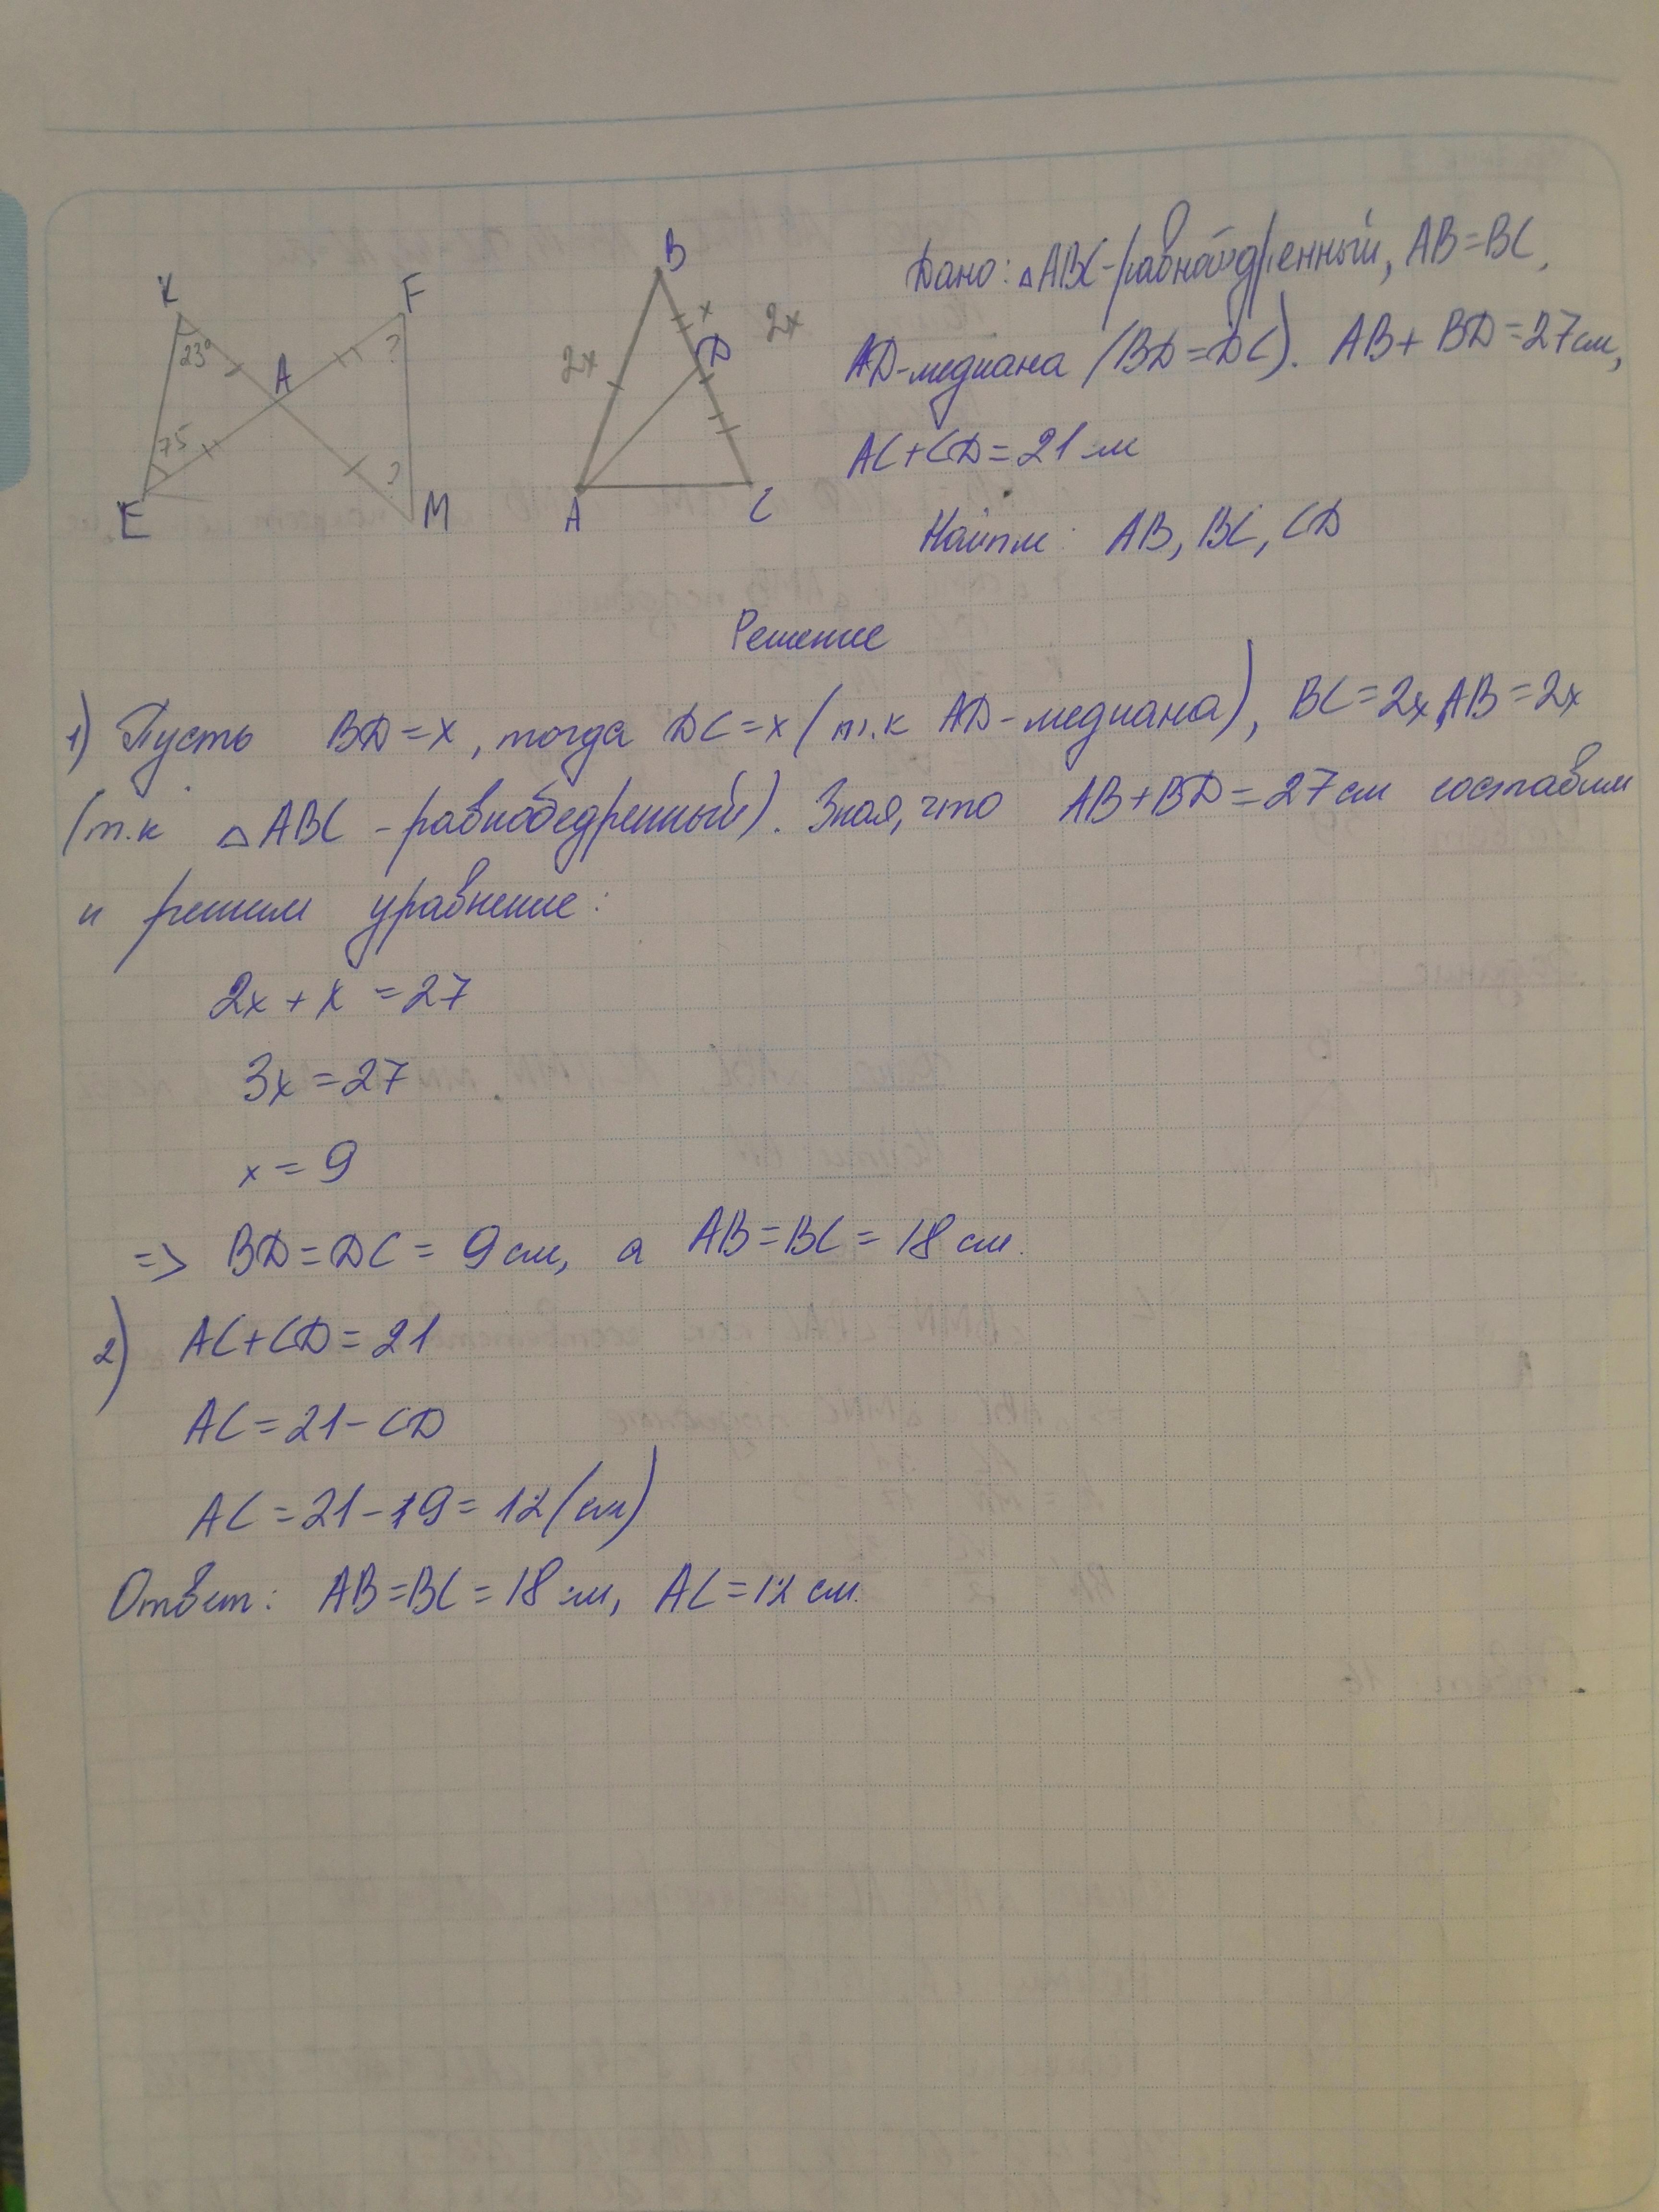 K
F
23°
A
?
75
?
E
M
B
x
2x
D
2x
A
C
Дано: △ABC-равнобедренный, AB=BC,
AD-медиана (BD=DC). AB+BD=27см,
AC+CD=21 см
Найти: AB, BC, CD
Решение
1) Пусть BD=x, тогда DC=x (т.к AD-медиана), BC=2x, AB=2x
(т.к △ABC - равнобедренный). Зная, что AB+BD=27см составим
и решим уравнение:
2x+x=27
3x=27
x=9
=> BD=DC=9см, а AB=BC=18см.
2) AC+CD=21
AC=21-CD
AC=21-9=12(см)
Ответ: AB=BC=18см, AC=12см.